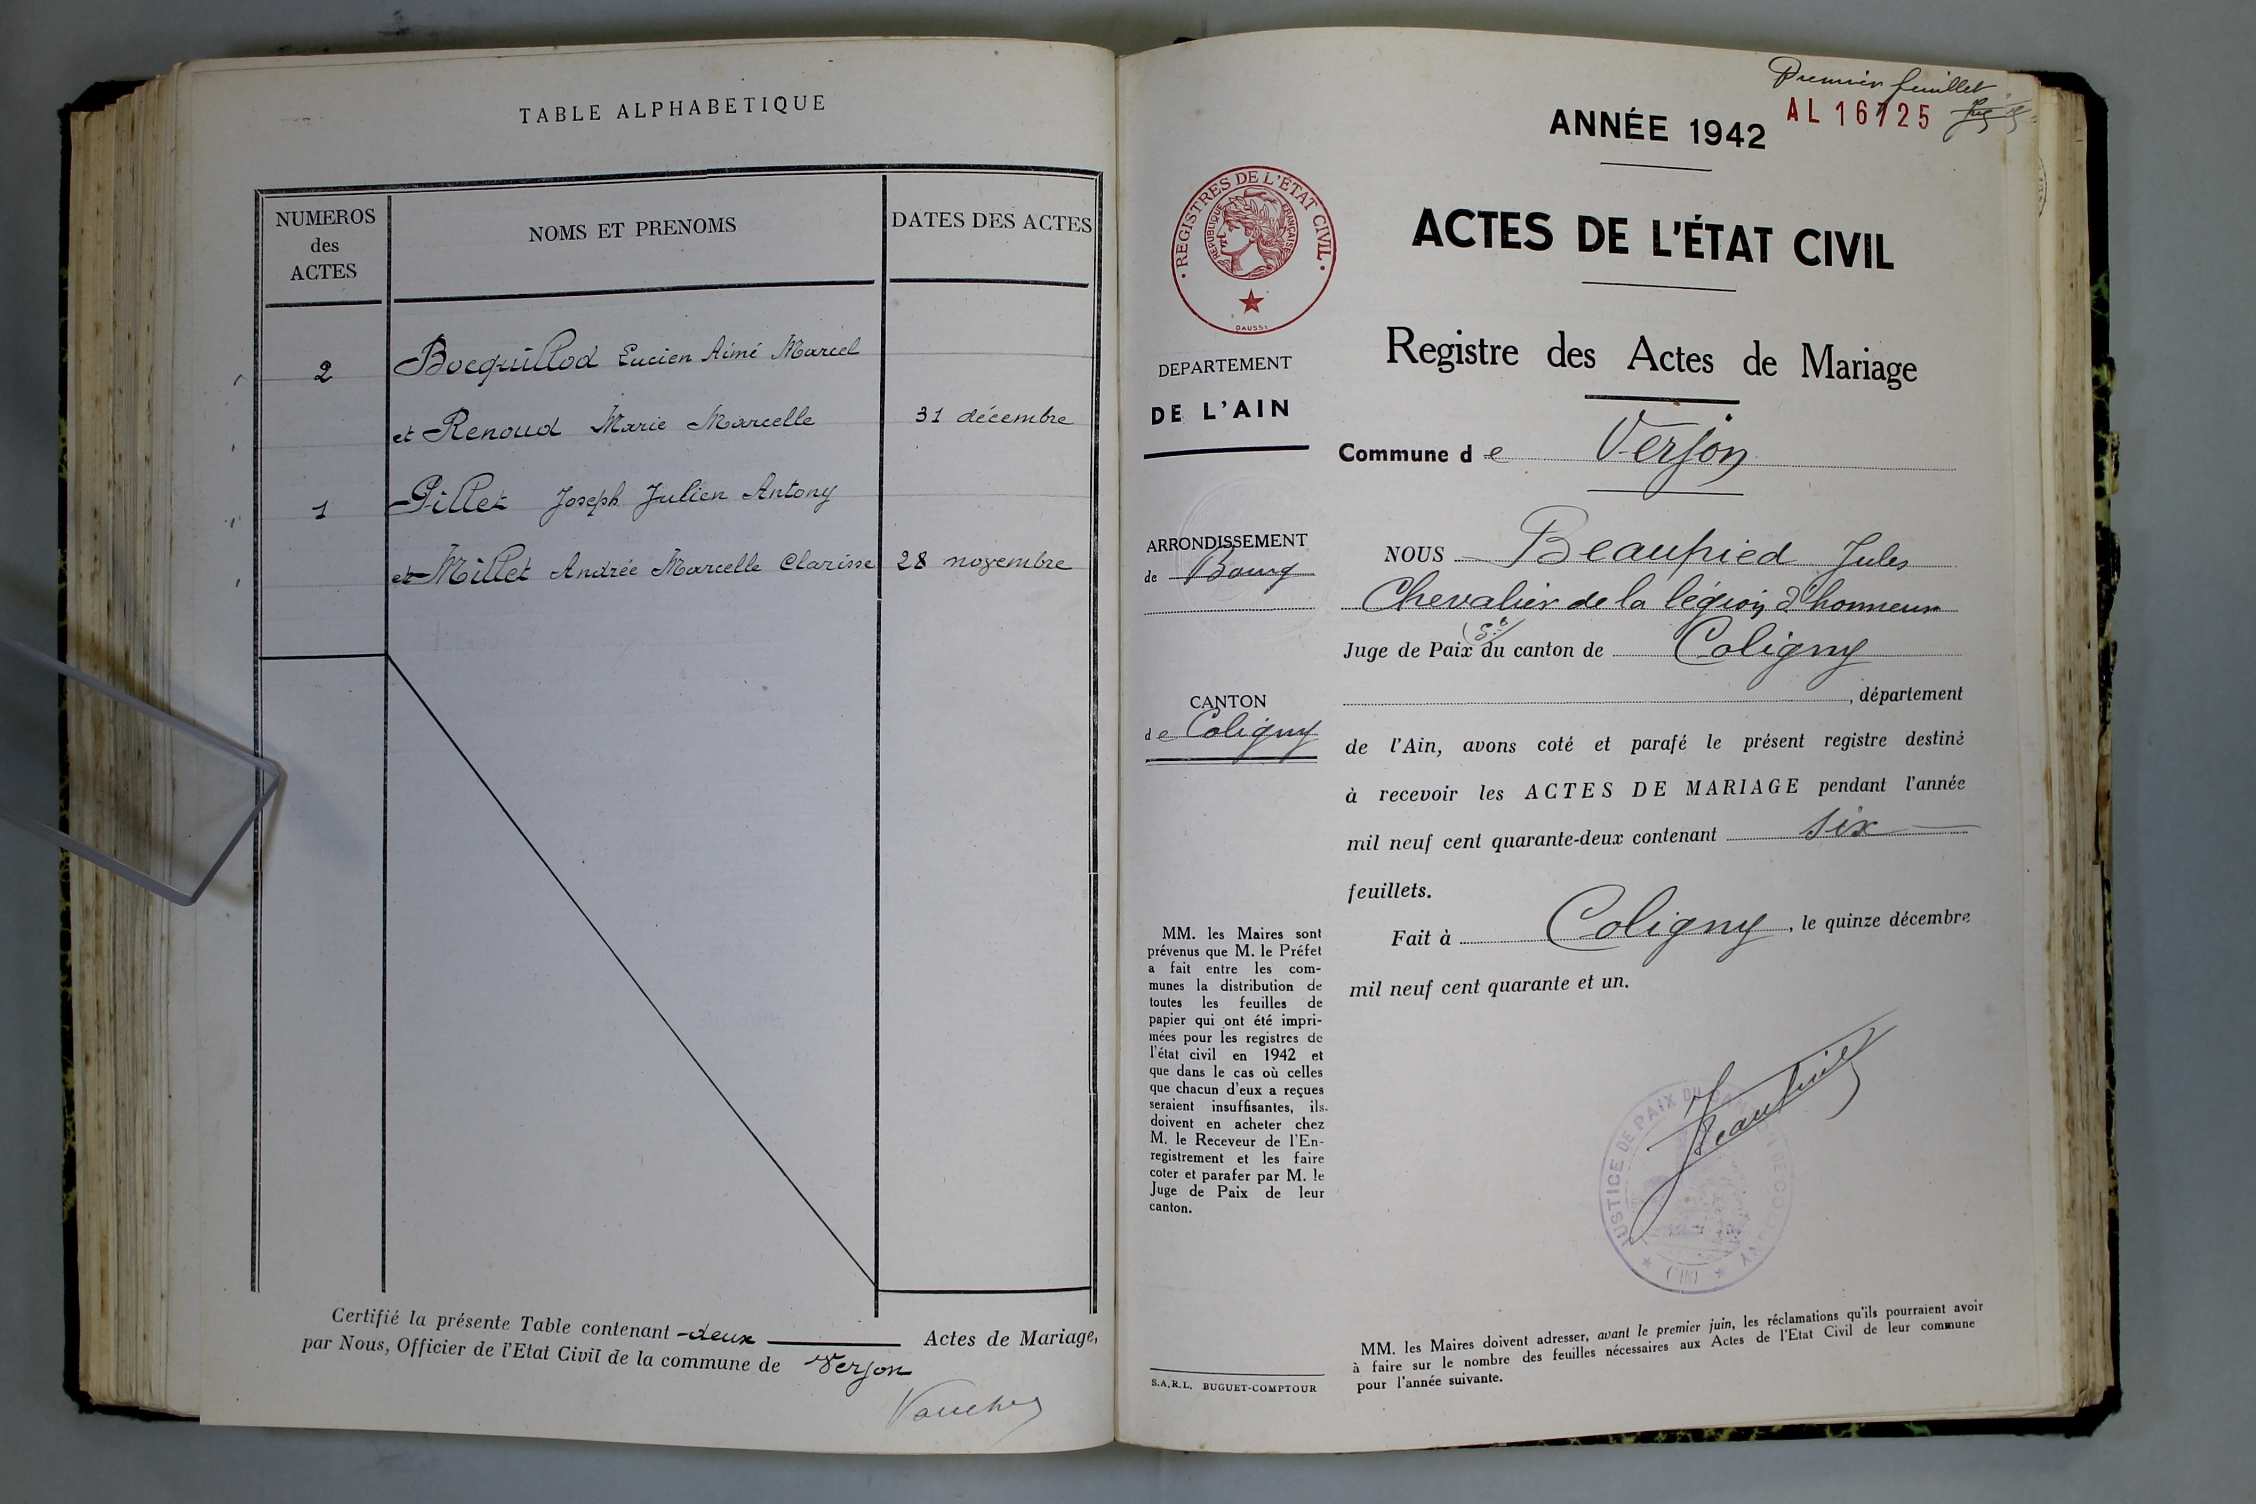 TABLE ALPHABETIQUE
NUMEROS
des
ACTES
NOMS ET PRENOMS
DATES DES ACTES
2
Bocquillod Lucien Aimé Marcel
et Renoud Marie Marcelle
31 décembre
1
Pillet Joseph Julien Antony
et Millet Andrée Marcelle Clarisse
28 novembre
Certifié la présente Table contenant - deux Actes de Mariage,
par Nous, Officier de l'Etat Civil de la commune de Verjon
Premier feuillet
ANNÉE 1942
AL 16725
REGISTRES DE L'ÉTAT CIVIL
RÉPUBLIQUE FRANÇAISE
DAUSSY
ACTES DE L'ÉTAT CIVIL
DEPARTEMENT
DE L'AIN
Registre des Actes de Mariage
Commune de Verjon
ARRONDISSEMENT
de Bourg
CANTON
de Coligny
NOUS Beaupied Jules
Chevalier de la légion d'honneur
Juge de Paix du canton de Coligny
, département
de l'Ain, avons coté et parafé le présent registre destiné
à recevoir les ACTES DE MARIAGE pendant l'année
mil neuf cent quarante-deux contenant six
feuillets.
Fait à Coligny, le quinze décembre
mil neuf cent quarante et un.
Beaupied
JUSTICE DE PAIX DU CANTON DE COLIGNY
(AIN)
MM. les Maires sont
prévenus que M. le Préfet
a fait entre les com-
munes la distribution de
toutes les feuilles de
papier qui ont été impri-
mées pour les registres de
l'état civil en 1942 et
que dans le cas où celles
que chacun d'eux a reçues
seraient insuffisantes, ils
doivent en acheter chez
M. le Receveur de l'En-
registrement et les faire
coter et parafer par M. le
Juge de Paix de leur
canton.
S.A.R.L. BUGUET-COMPTOUR
MM. les Maires doivent adresser, avant le premier juin, les réclamations qu'ils pourraient avoir
à faire sur le nombre des feuilles nécessaires aux Actes de l'Etat Civil de leur commune
pour l'année suivante.